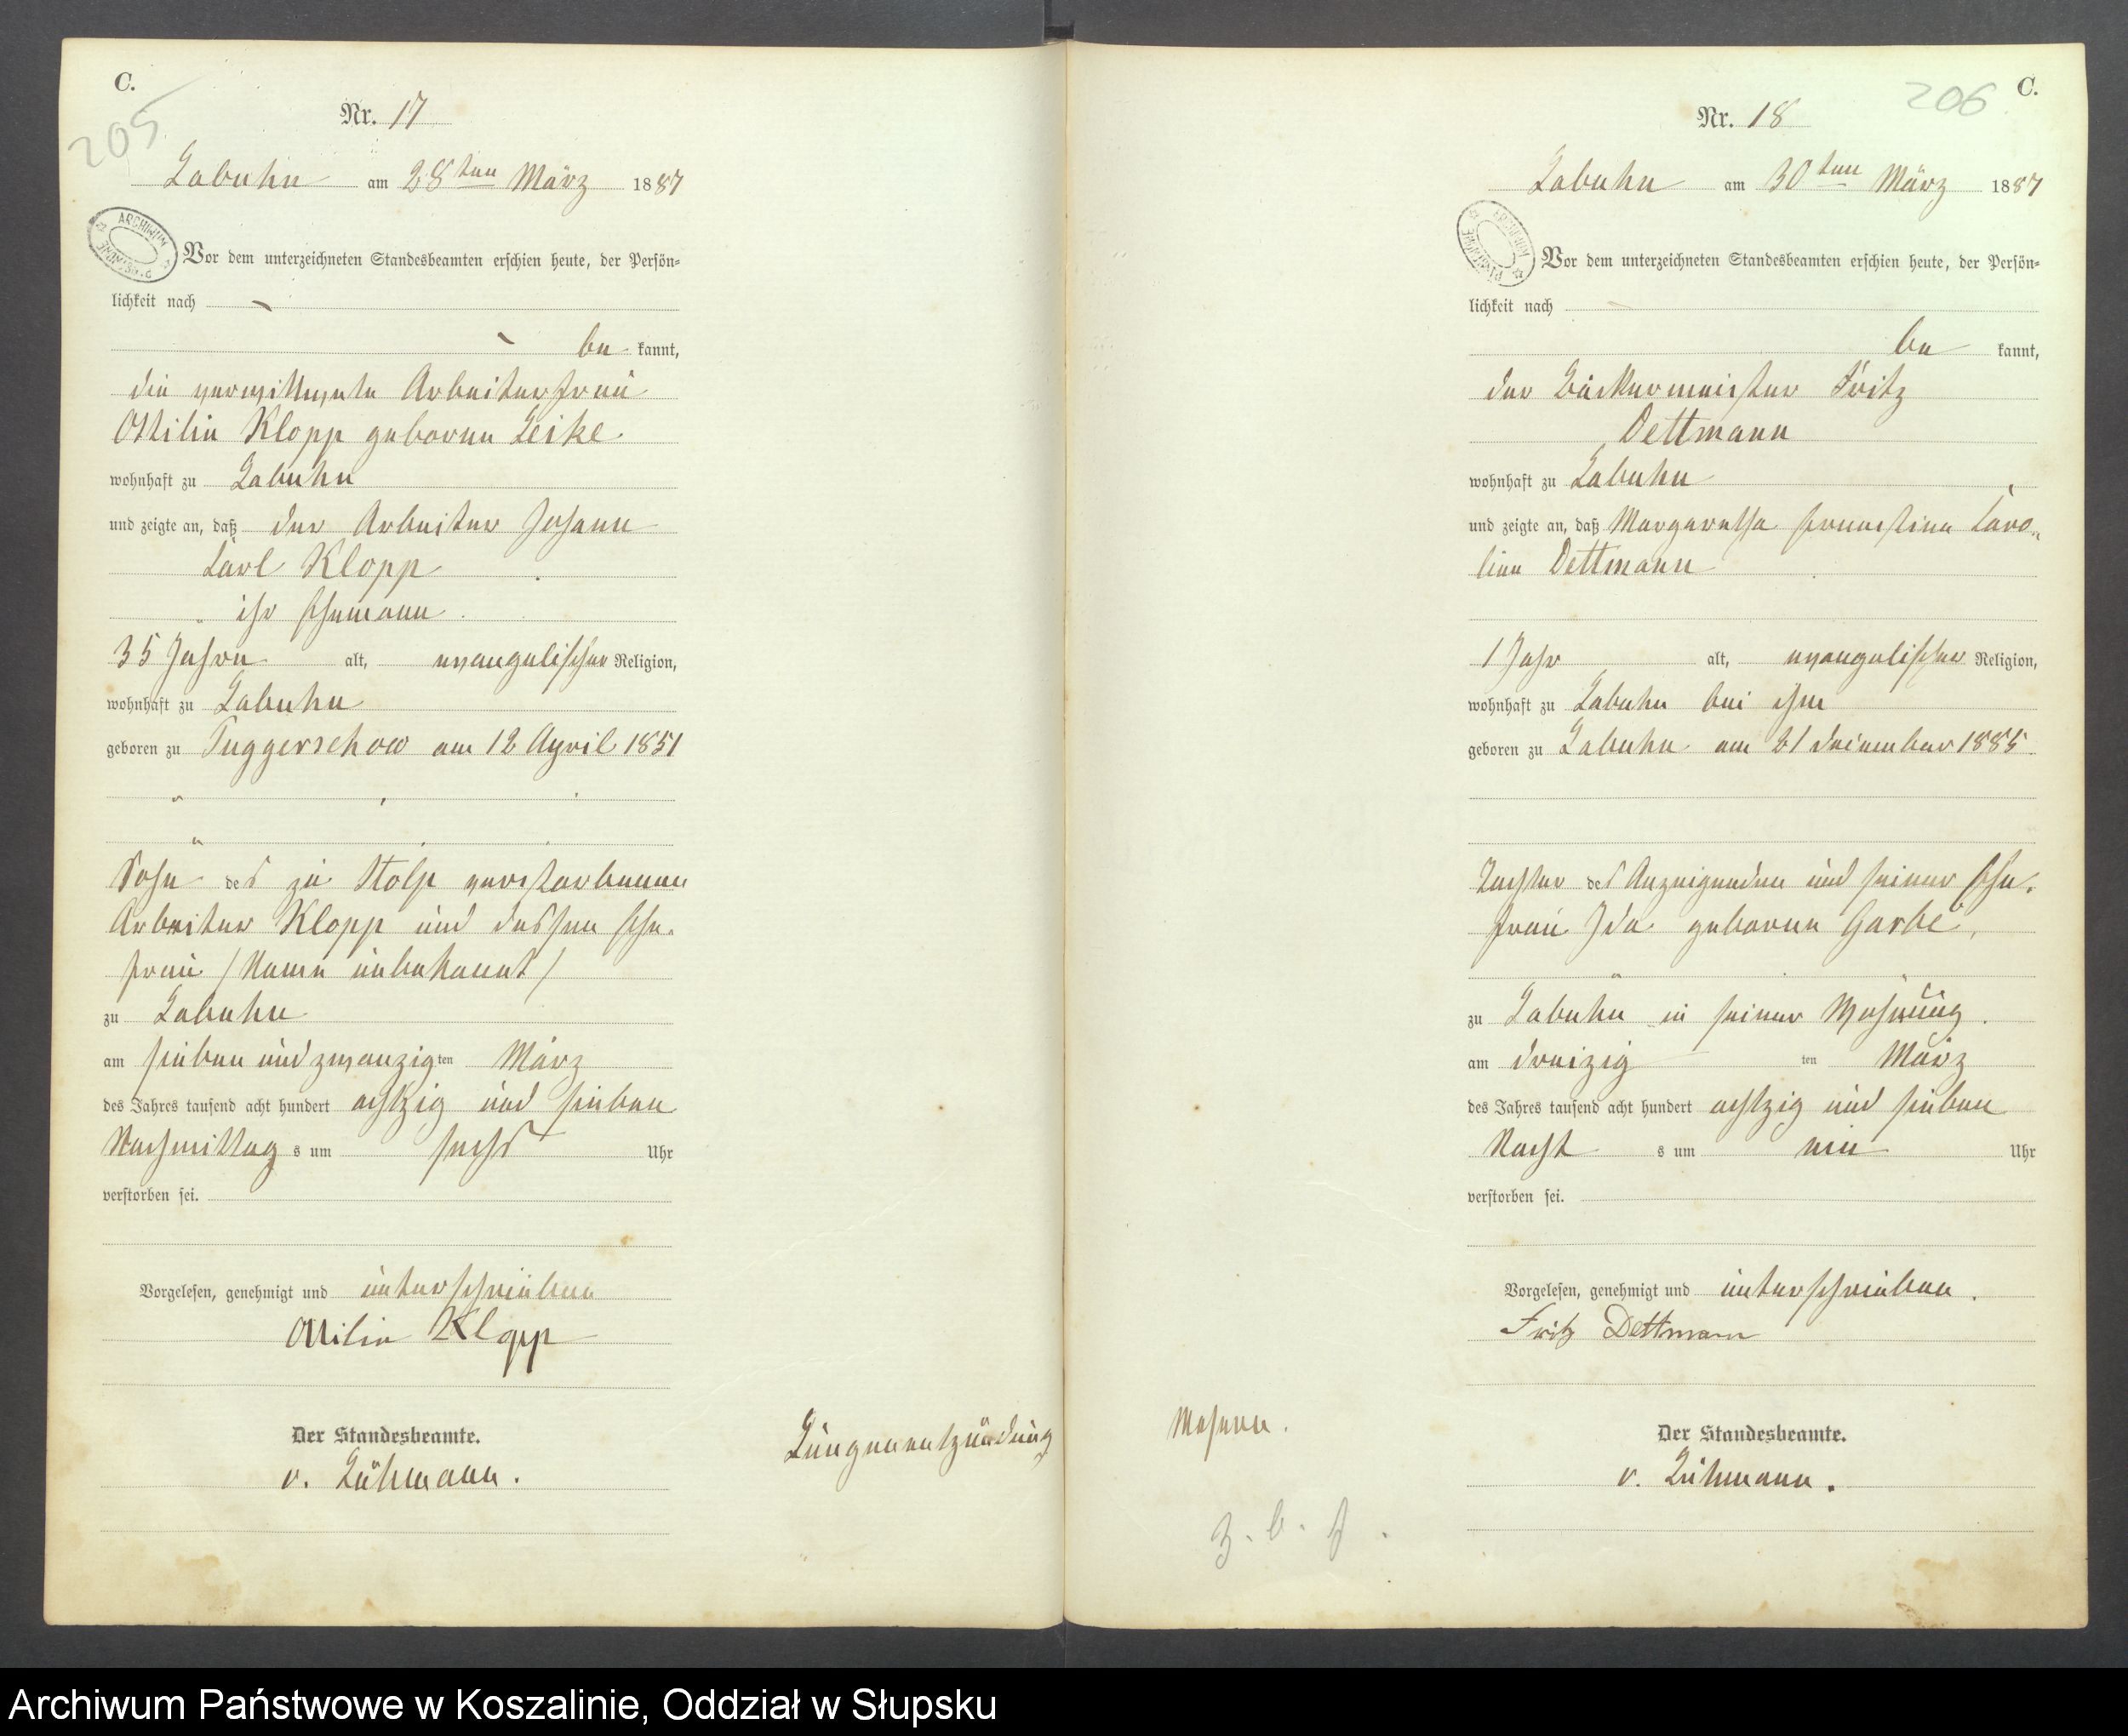 C.
205
Nr. 17
Labuhn am 28ten März 1887
ARCHIWUM
Vor dem unterzeichneten Standesbeamten erschien heute, der Persön=
lichkeit nach
be kannt,
die verwittwete Arbeiterfrau
Ottilie Klopp geborene Leike
wohnhaft zu Labuhn
und zeigte an, daß der Arbeiter Johann
Carl Klopp
ihr Ehemann
35 Jahre alt, evangelischer Religion,
wohnhaft zu Labuhn
geboren zu Tuggerschow am 12 April 1851
Sohn des zu Stolp verstorbenen
Arbeiter Klopp und dessen Ehe-
frau /Name unbekannt/
zu Labuhn
am sieben und zwanzigten März
des Jahres tausend acht hundert achtzig und sieben
Nachmittag s um sechs Uhr
verstorben sei.
Vorgelesen, genehmigt und unterschrieben
Ottilie Klopp
Der Standesbeamte.
v. Lühmann.
Lungenentzündung
C.
206
Nr. 18
Labuhn am 30ten März 1887
ARCHIWUM
Vor dem unterzeichneten Standesbeamten erschien heute, der Persön=
lichkeit nach
be kannt,
der Bäckermeister Fritz
Dettmann
wohnhaft zu Labuhn
und zeigte an, daß Margarethe Ernestine Caro-
line Dettmann
1 Jahr alt, evangelischer Religion,
wohnhaft zu Labuhn bei ihm
geboren zu Labuhn am 21 Dezember 1885
Tochter des Anzeigenden und seiner Ehe-
frau Ida geborene Garbe,
zu Labuhn in seiner Wohnung.
am dreizig ten März
des Jahres tausend acht hundert achtzig und sieben
Nacht s um ein Uhr
verstorben sei.
Vorgelesen, genehmigt und unterschrieben.
Fritz Dettmann
Der Standesbeamte.
v. Lühmann.
Masern.
Archiwum Państwowe w Koszalinie, Oddział w Słupsku